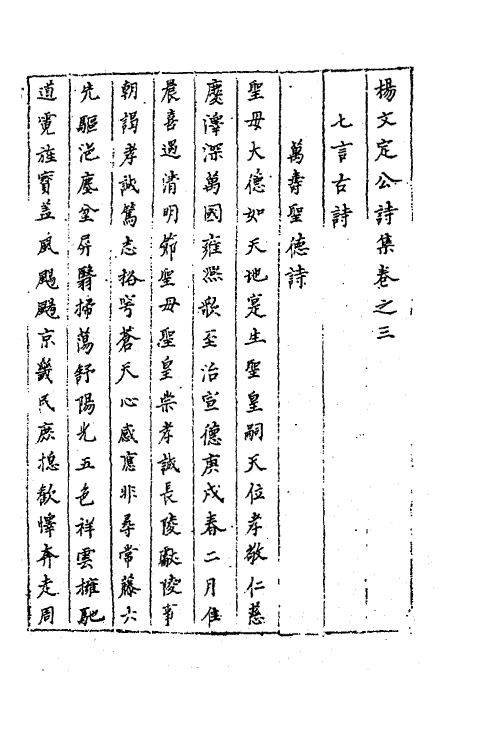 楊文定公詩集卷之三
七言古詩
萬壽聖德詩
聖母大德如天地寔生聖皇嗣天位孝敬仁慈
慶澤深萬國雍熙歌至治宣德庚戌春二月佳
晨喜遇清明節聖母聖皇崇孝誠長陵獻陵事
朝謁孝誠篤志格穹蒼天心感應非尋常藤六
先驅浥塵坌屏翳掃蕩舒陽光五色祥雲擁馳
道霓旌寶盖風颺颺京畿民庶揔歡懌奔走周